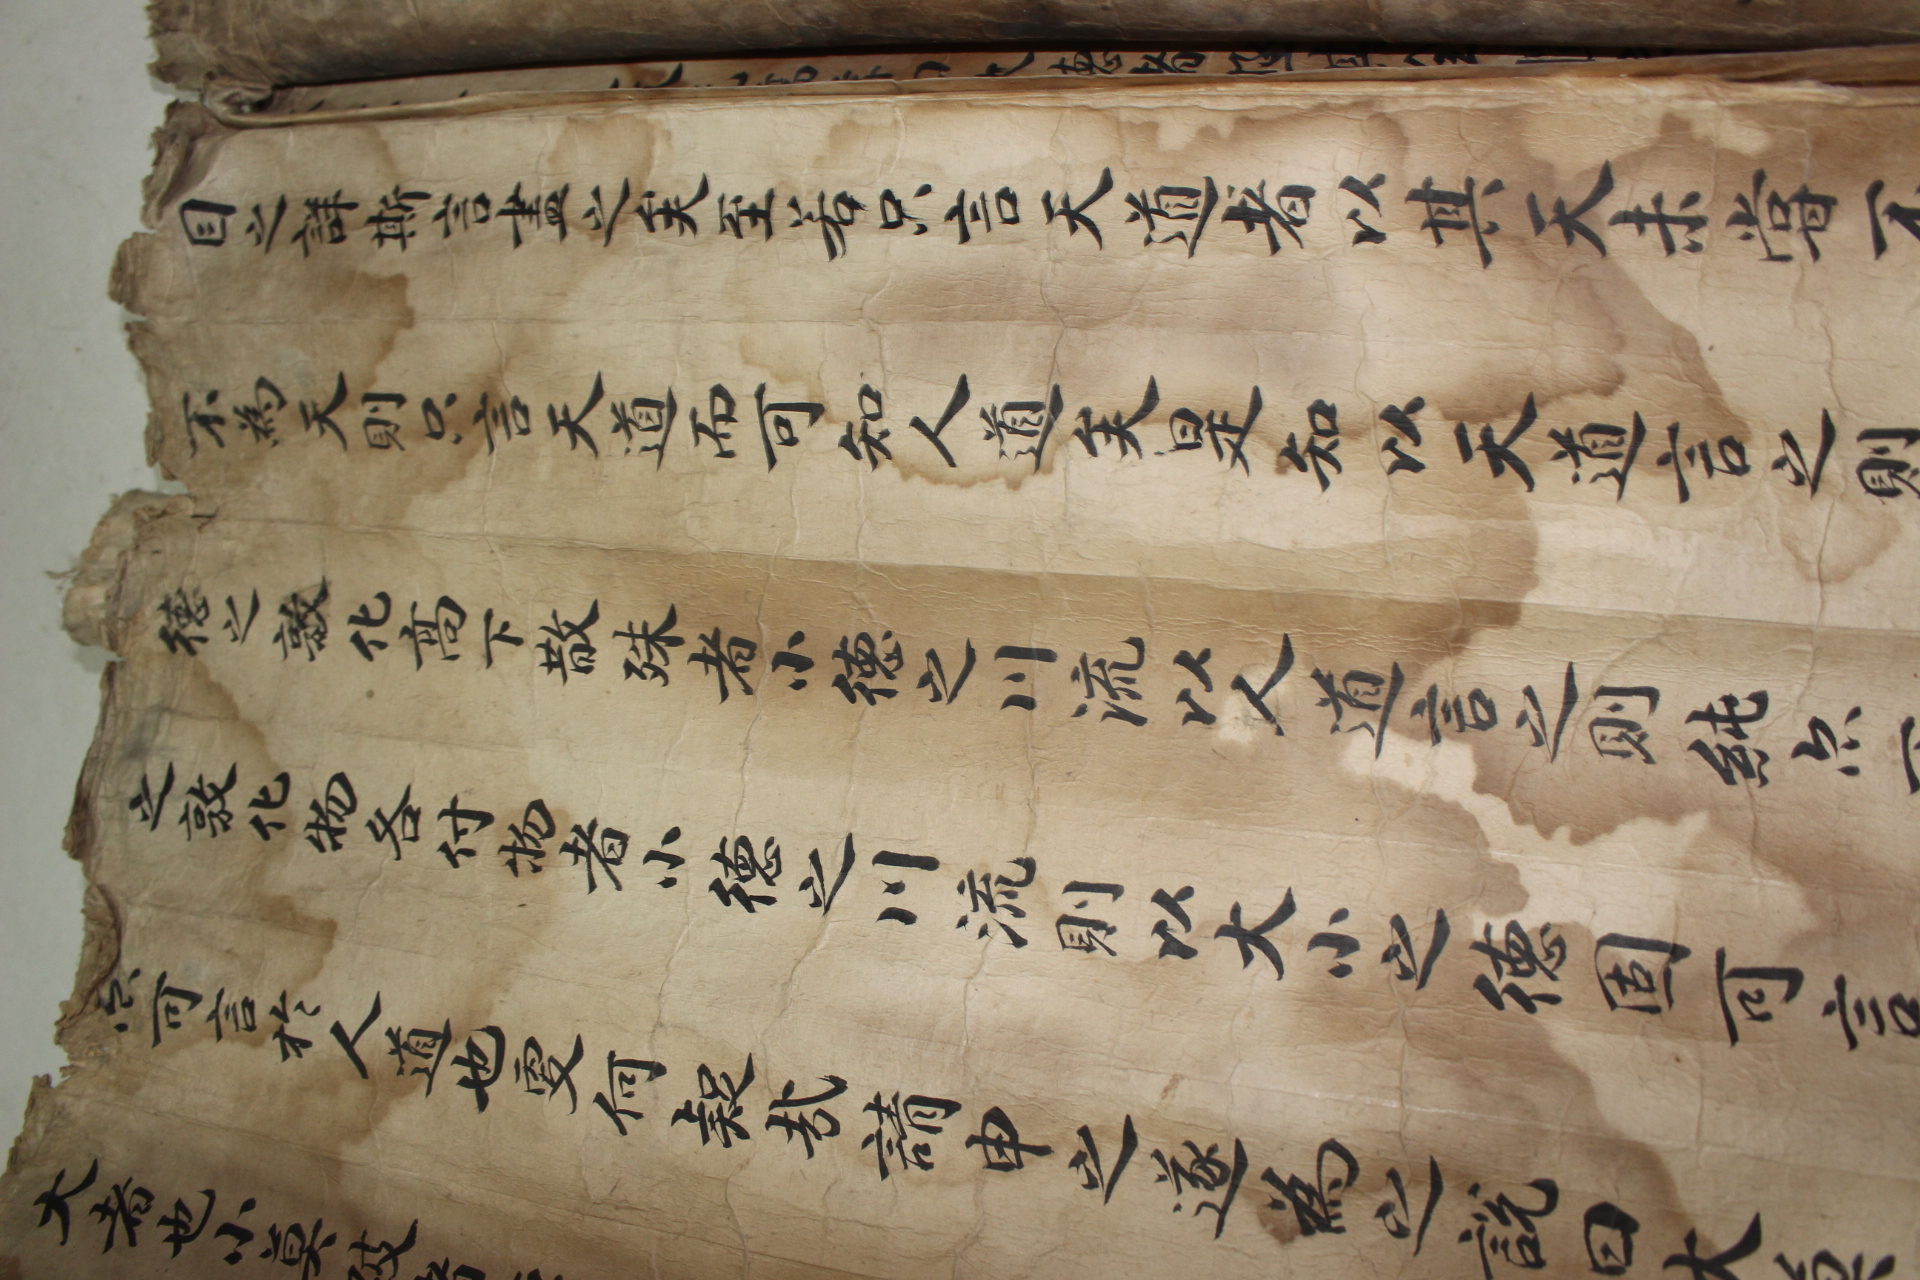 目之詳斯言盡之矣至若只言天道者以其天未嘗不
不為天則只言天道而可知人道矣是知以天道言之則
德之敦化高下散殊者小德之川流以人道言之則純亦
之敦化物各付物者小德之川流則以大小之德固可言
只可言於人道也更何疑哉請申之遂為之說曰大
大者也小莫破